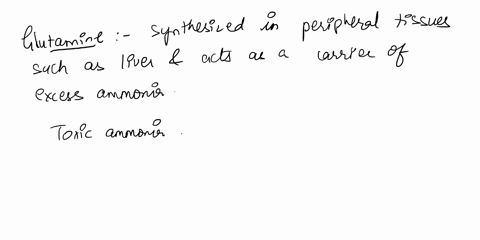 Glutamine :- synthesized in peripheral tissues
such as liver & acts as a carrier of
excess ammonia
Toxic ammonia .